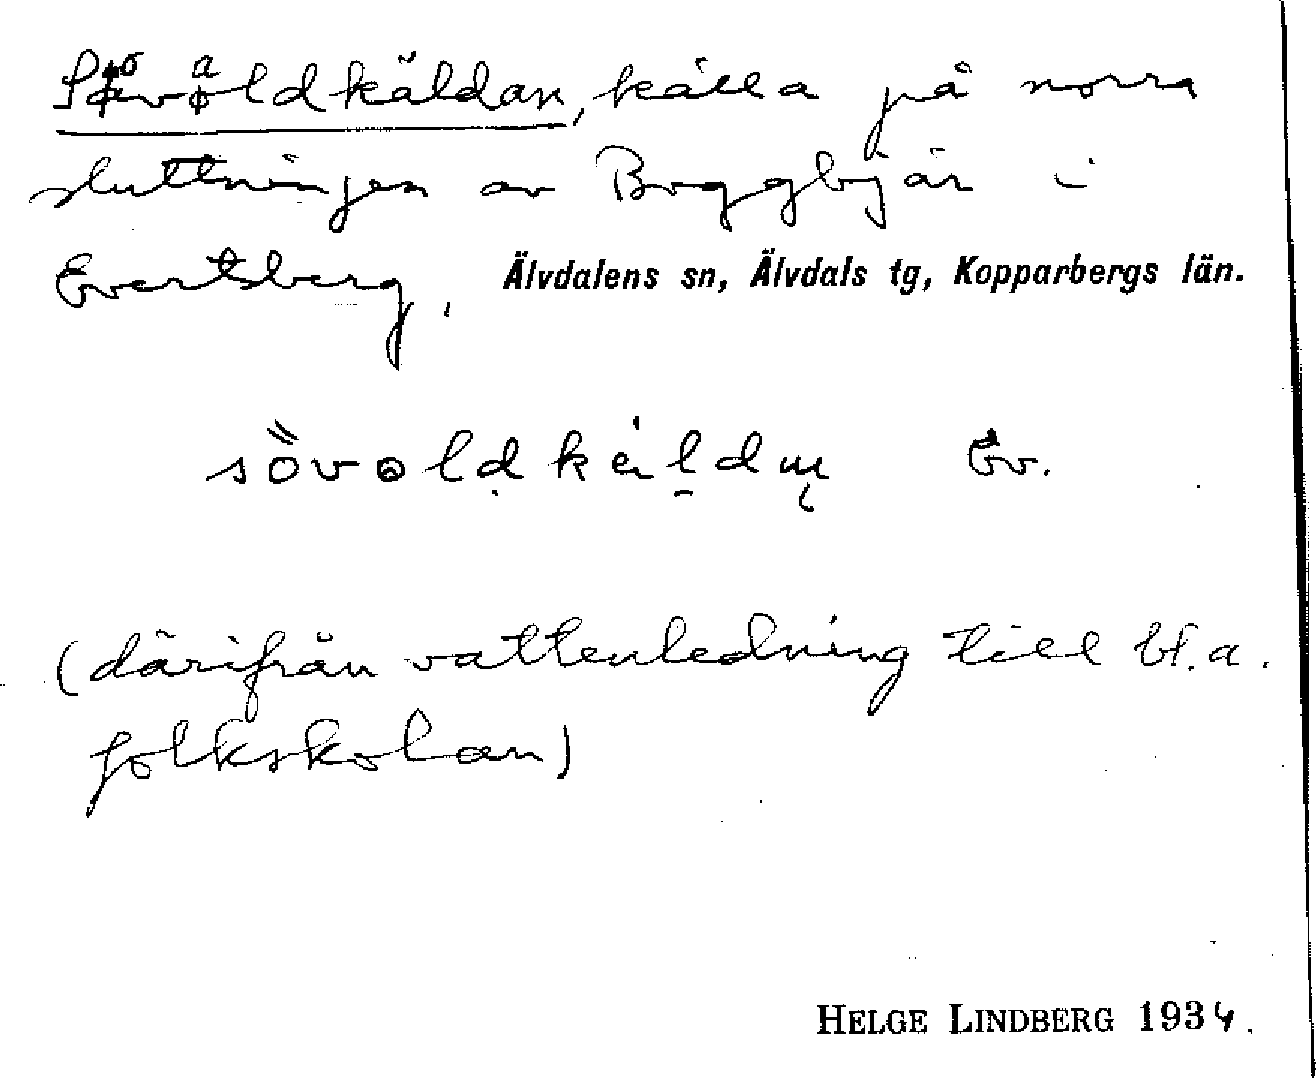 Sövaldkäldan, källa på norra
sluttningen av Byggbjär i
Evertsberg. Älvdalens sn, Älvdals tg, Kopparbergs län.
Ev.
(därifrån vattenledning till bl.a.
folkskolan)
HELGE LINDBERG 1934.